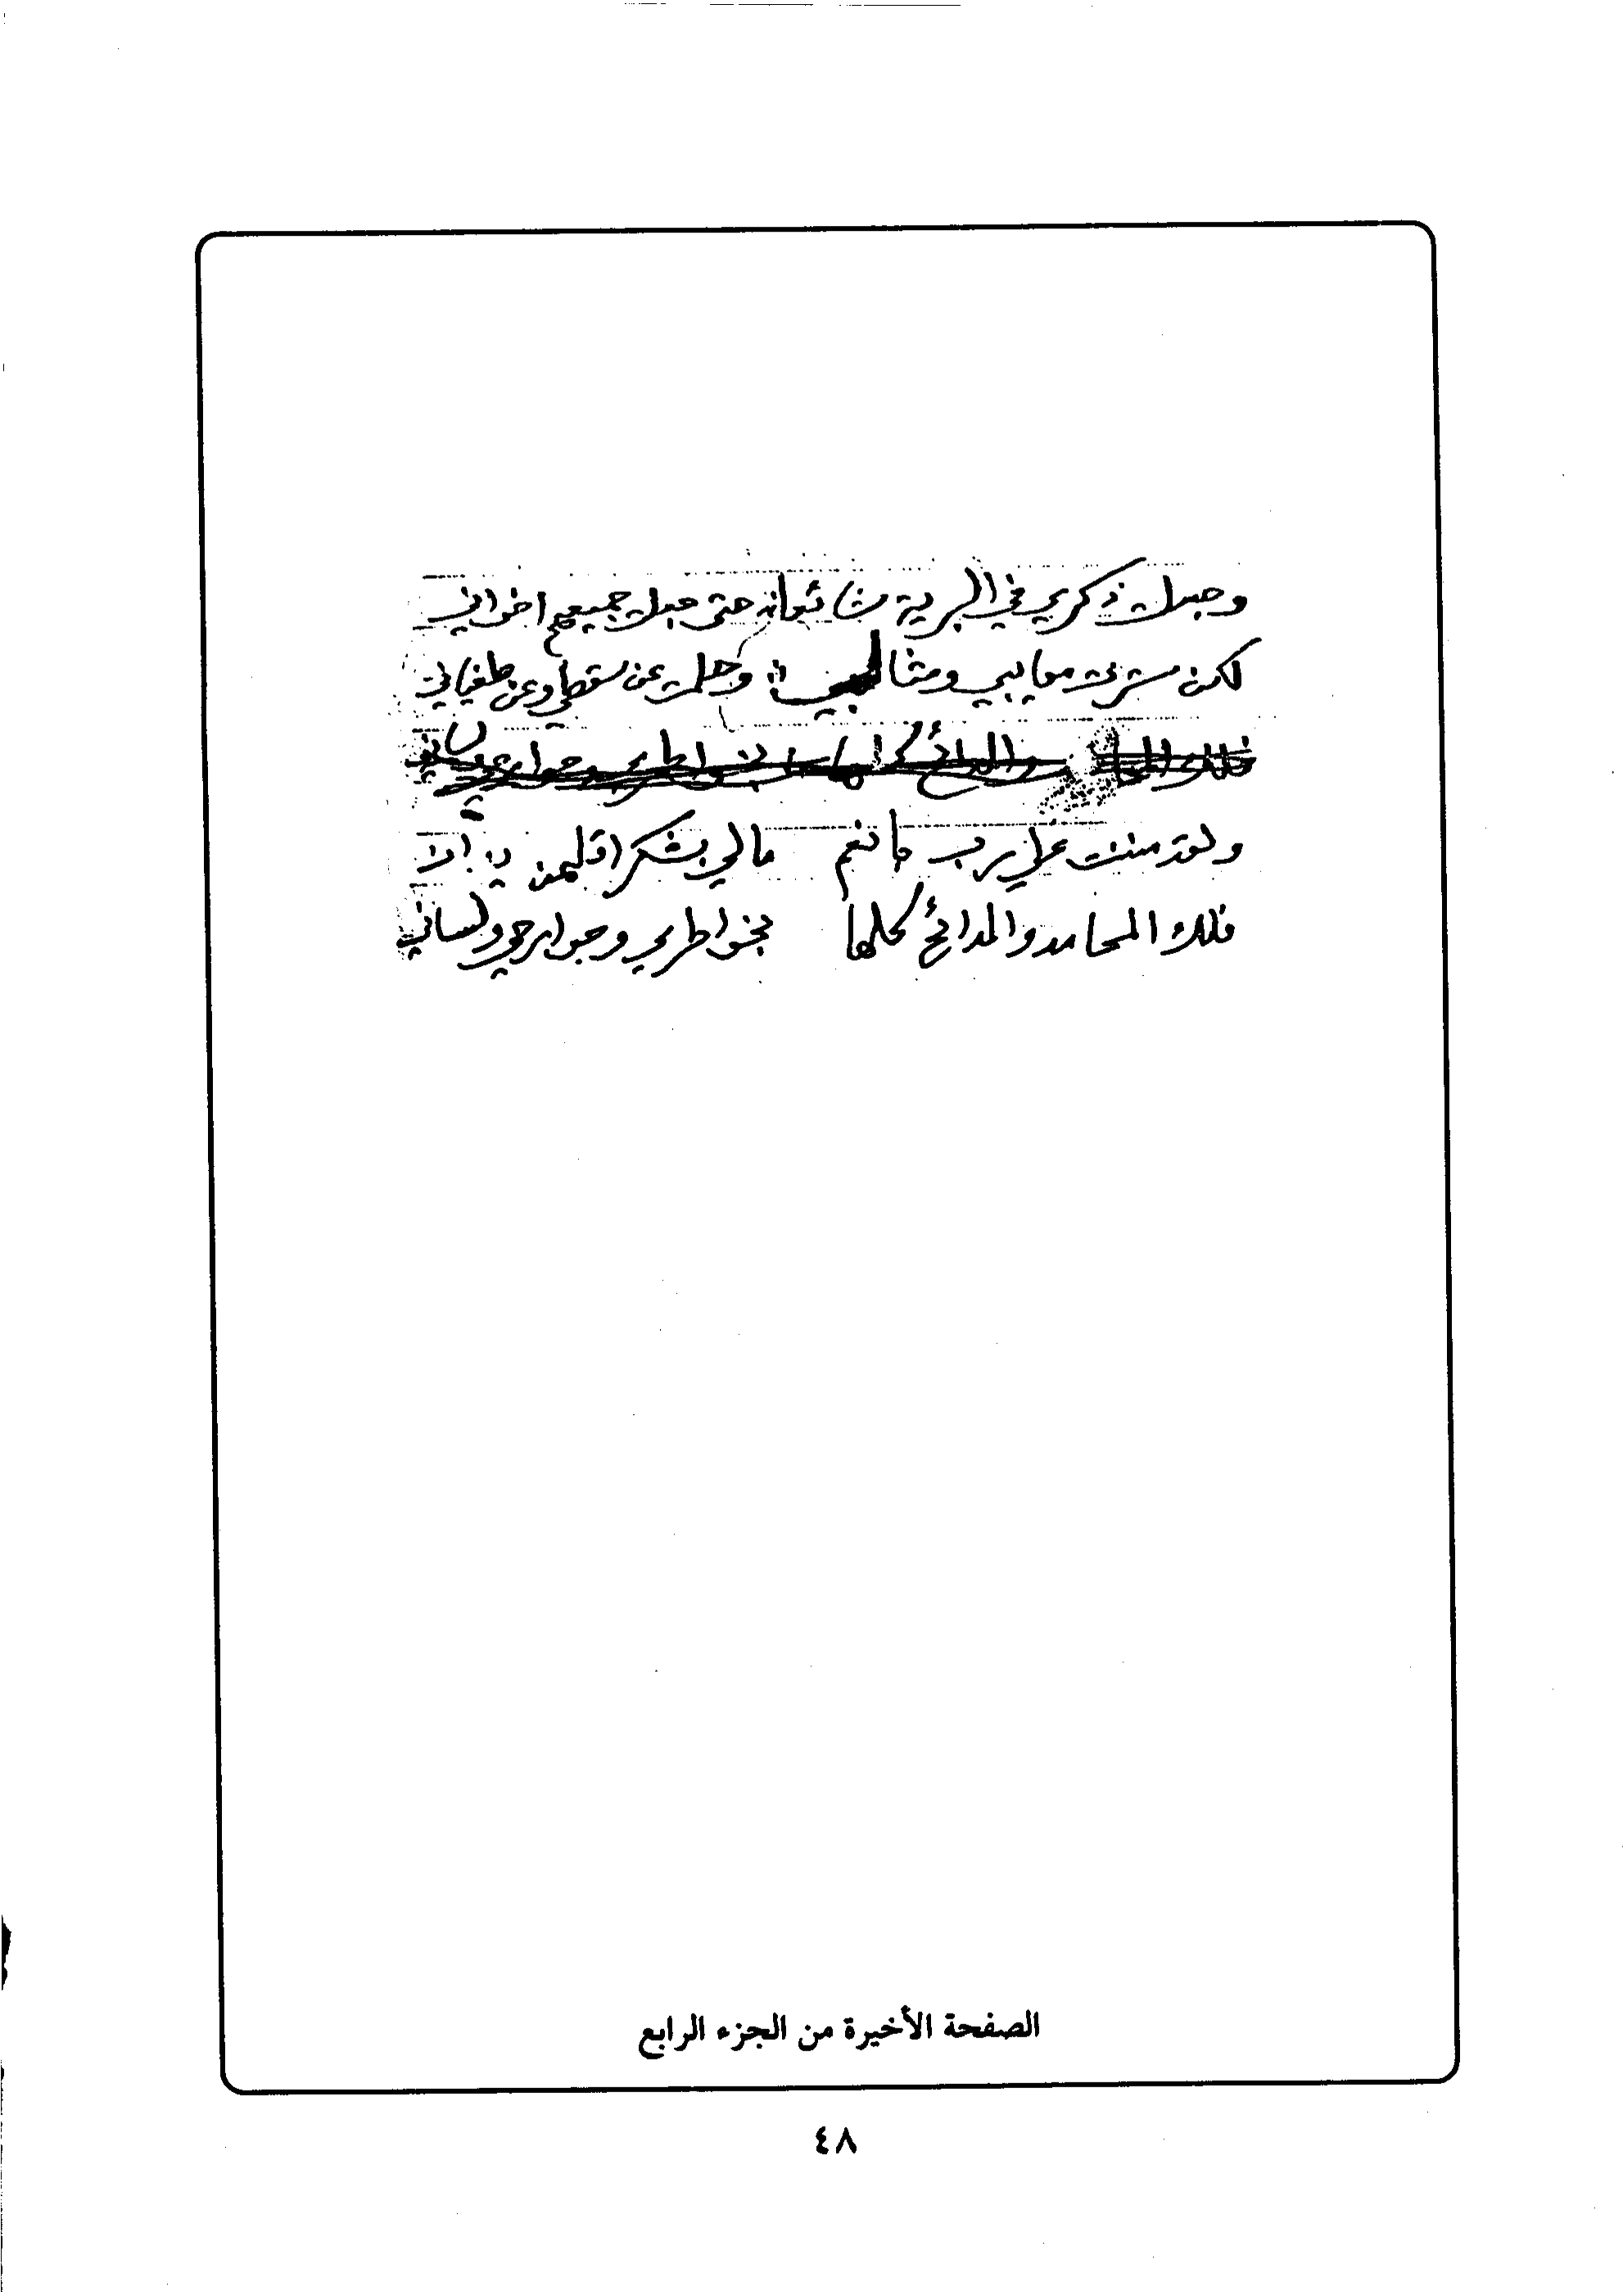 وجعلت ذكري في البرية شائعا :: حتى جعلت جميعهم اخواني
لكن سترت معايبي ومثالبي :: وحلمت عن سقطي وعن طغياني
فلك المحامد والمدائح كلها بخواطري وجوارحي ولساني
ولقد مننت علي رب بانعم مالي بشكر اقلهن يدان
فلك المحامد والمدائح كلها بخواطري وجوارحي ولساني
الصفحة الأخيرة من الجزء الرابع
٤٨